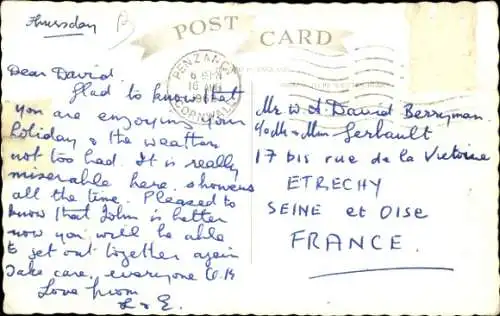 Thursday
B
POST CARD
PENZANCE
CORNWALL
Dear David.
Glad to know that
you are enjoying your
holiday & the weather
not too bad. It is really
miserable here, showers
all the time. Pleased to
know that John is better
now you will be able
to get out together again
Take care, everyone O.K
Love from
L & E.
Mr W A David Berryman.
c/o Mr & Mme Gerbault
17 bis rue de la Victoire
ETRECHY
SEINE et OISE
FRANCE.